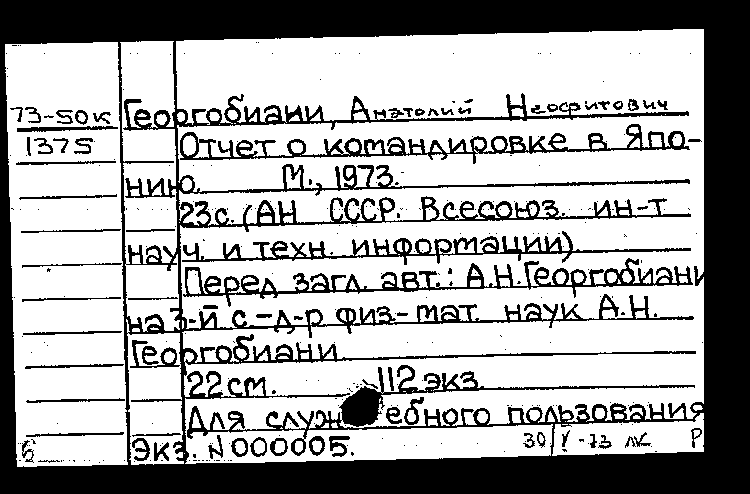 73-50к Георгобиани, Анатолий Неофитович
1375 Отчет о командировке в Япо-
нию. М., 1973.
23с. (АН СССР. Всесоюз. ин-т
науч. и техн. информации).
Перед загл. авт.: А.Н.Георгобиани
на 3-й с.-д-р физ-мат. наук А.Н.
Георгобиани
22 см. 112 экз.
Для служебного пользования
Экз. N 000005.
6 30/V-73 лк Р